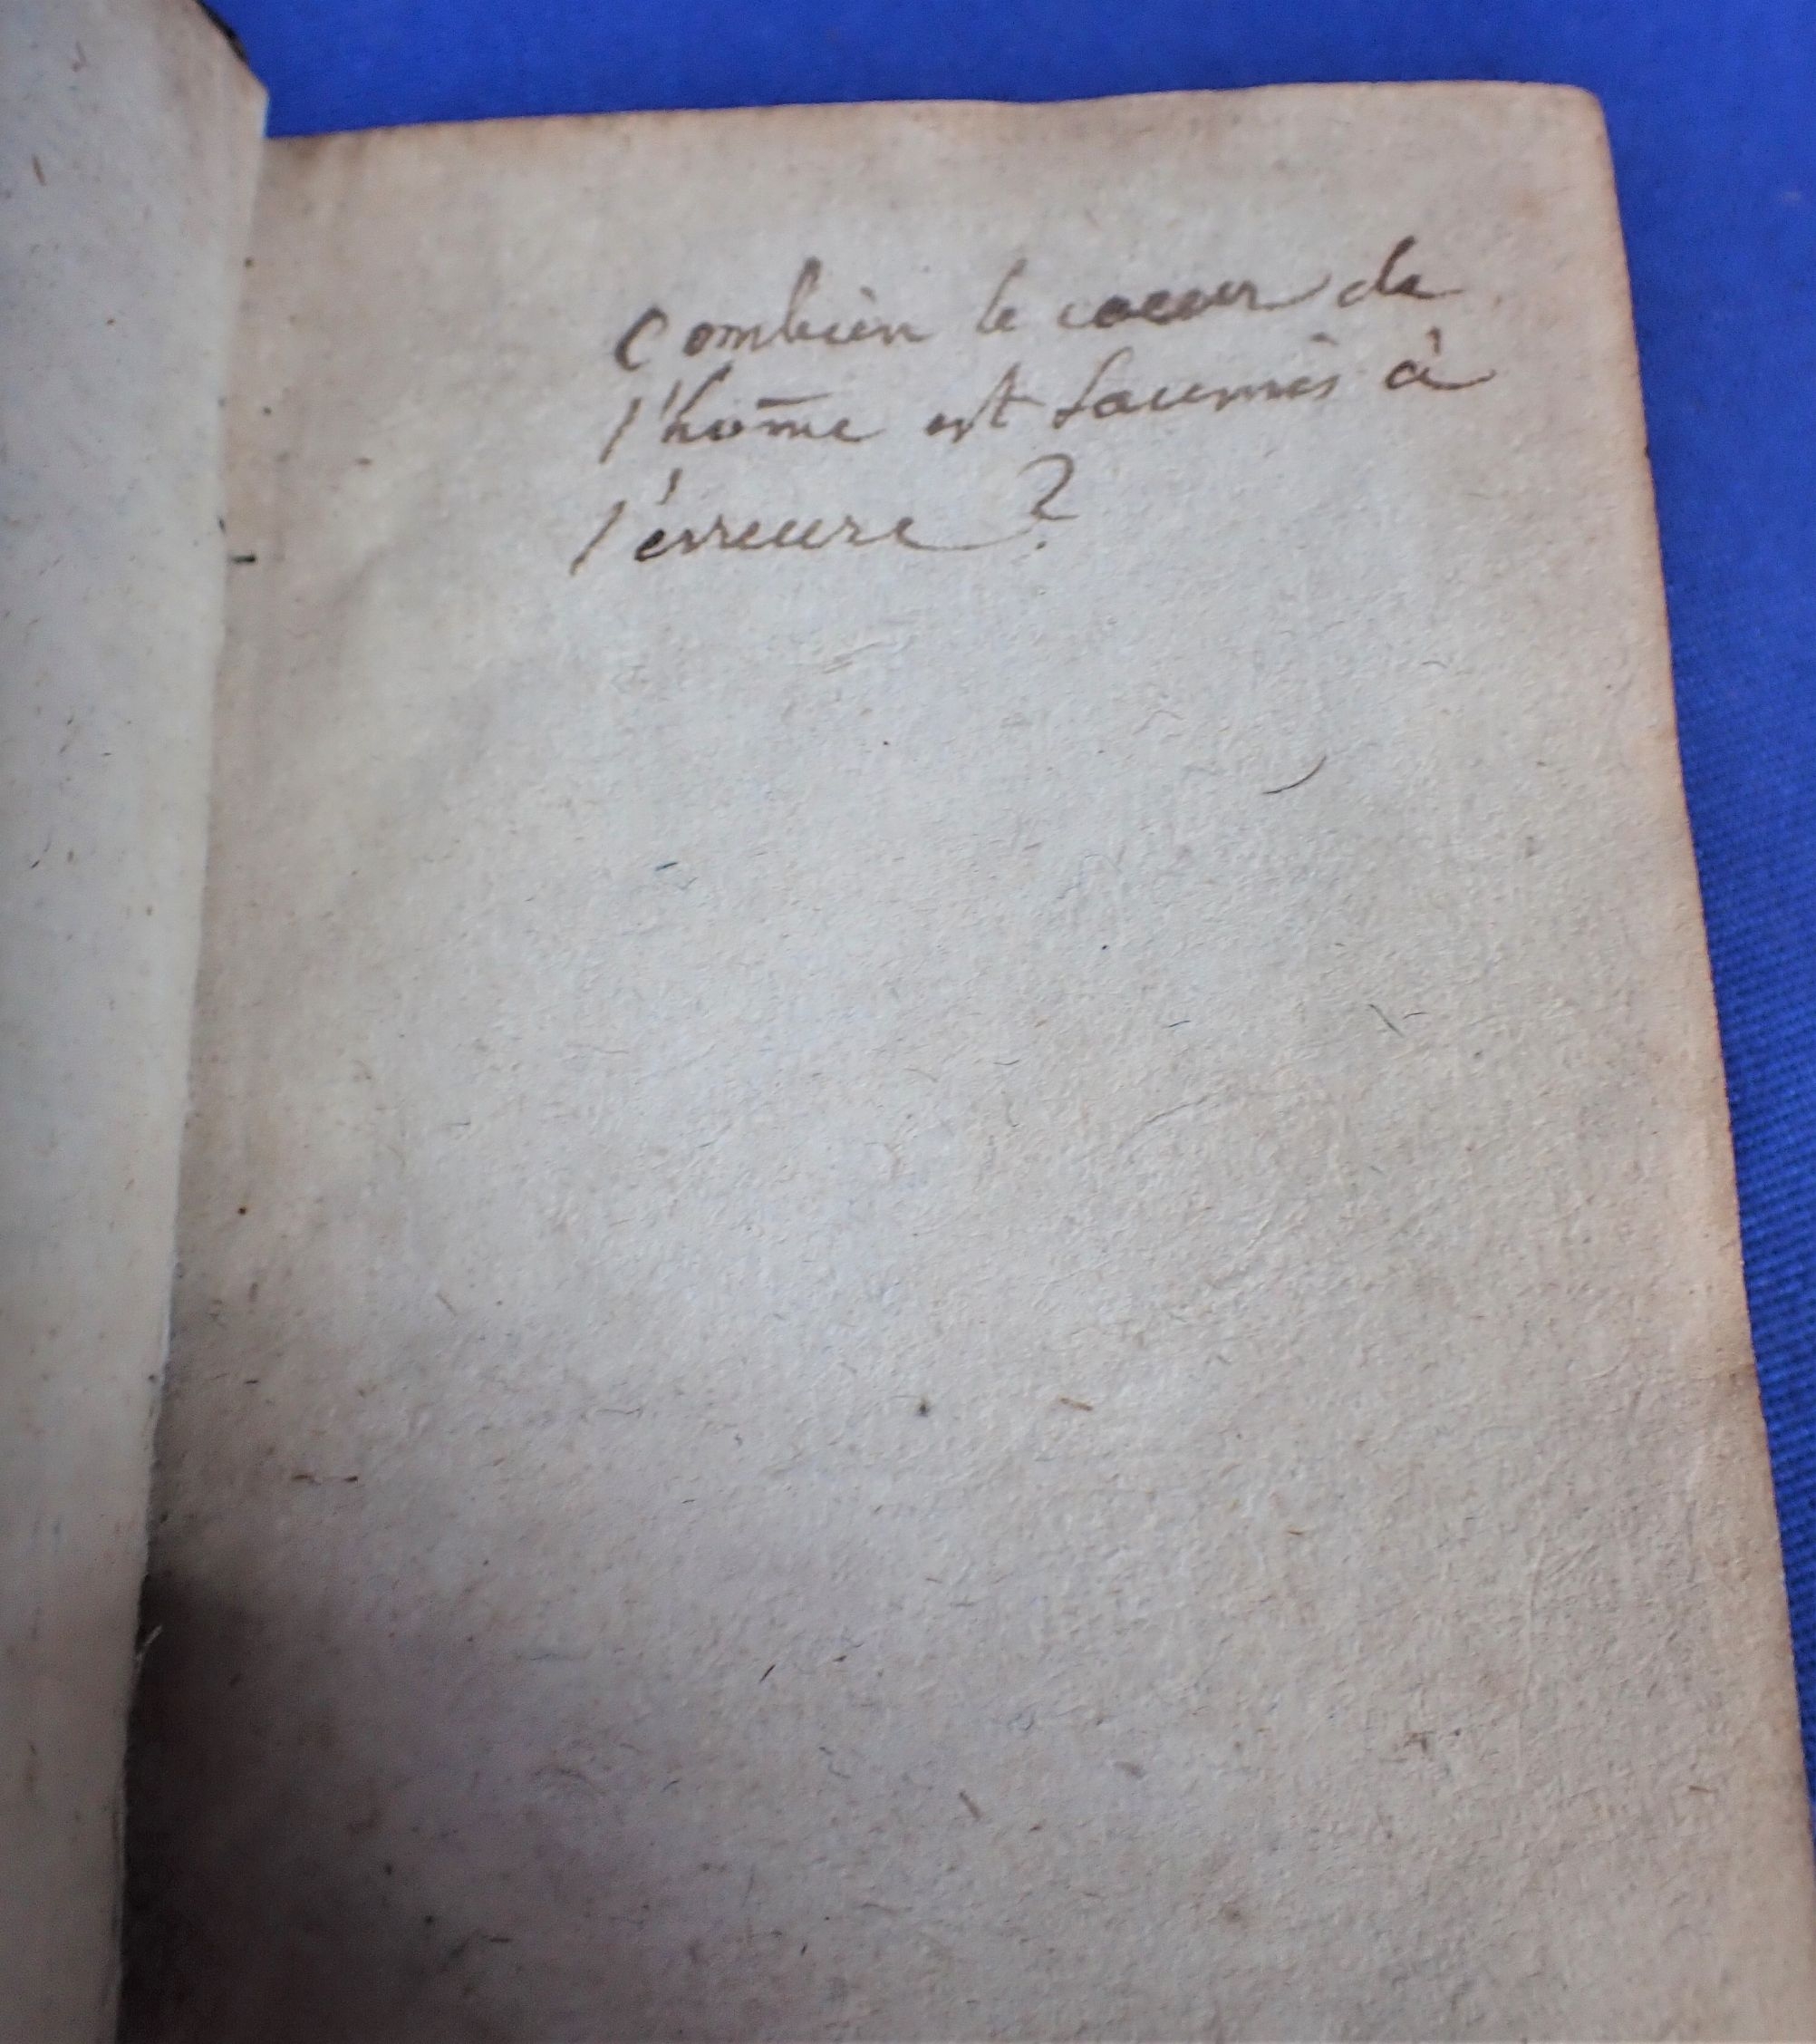 Combien le coeur de
l'hom̄e est soumis à
l'erreure ?